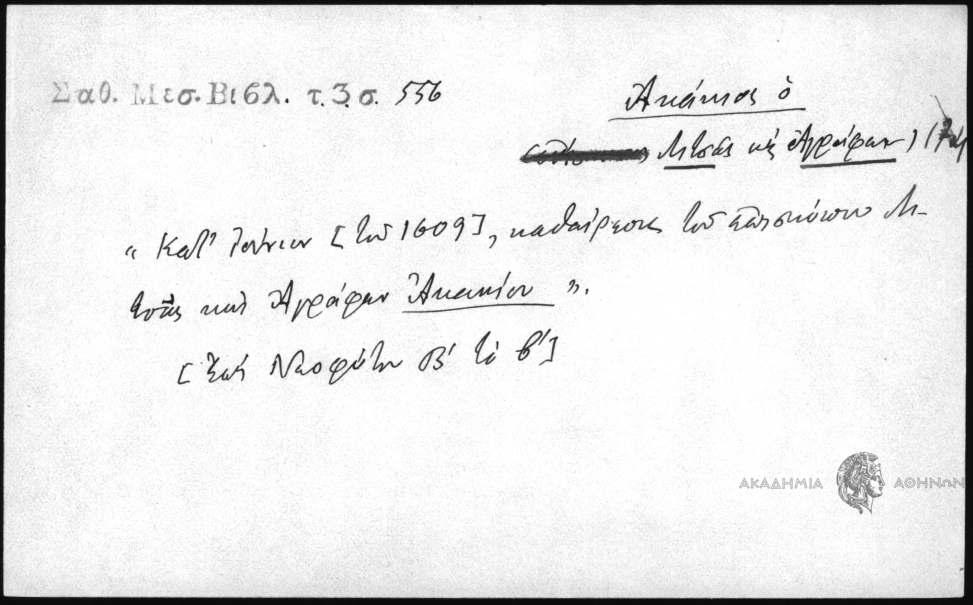 Σαθ. Μεσ. Βιβλ. τ. 3. σ. 556
Ἀκάκιος ὁ
Λιτσᾶς κ̀ Ἀγράφων) (17
" Κατ' Ἰούνιον [τοῦ 1609], καθαίρεσις τοῦ ἐπισκόπου Λι-
τσᾶς καὶ Ἀγράφων Ἀκακίου ".
[Ἐπὶ Νεοφύτου Β' τὸ β']
ΑΚΑΔΗΜΙΑ ΑΘΗΝΩΝ